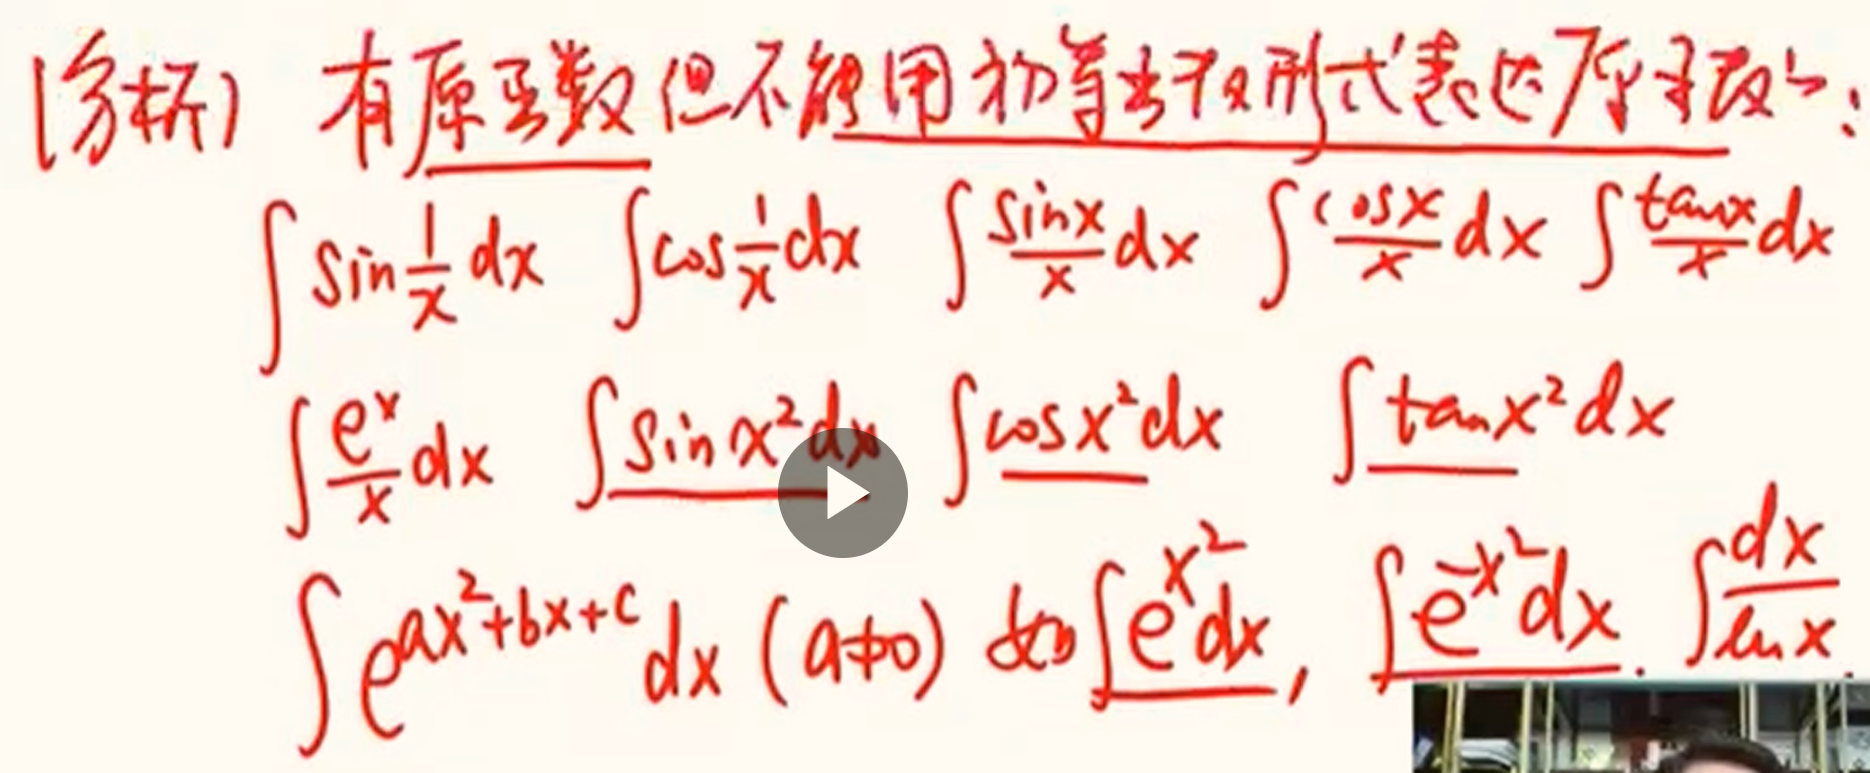 (分析) 有原函数但不能用初等函数形式表达原函数的:
∫sin 1/x dx ∫cos 1/x dx ∫ sinx/x dx ∫ cosx/x dx ∫ tanx/x dx
∫ e^x/x dx ∫sin x² dx ∫cos x² dx ∫tan x² dx
∫e^(ax²+bx+c) dx (a≠0) 如∫e^(x²) dx, ∫e^(-x²) dx. ∫ dx/ln x.